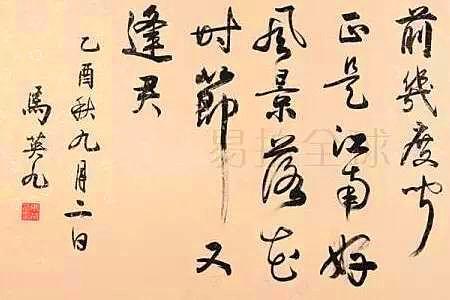 前幾度聞
正是江南好
风景落花
时節又
逢君
乙酉秋九月二日
馬英九
易拍全球